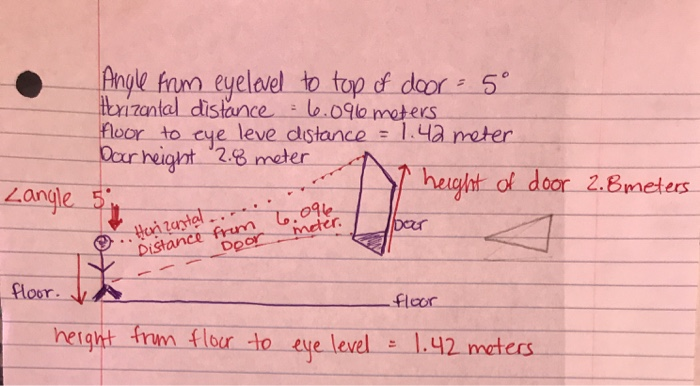 Angle from eyelevel to top of door = 5°
Horizontal distance = 6.096 meters
floor to eye leve distance = 1.42 meter
Door height 2.8 meter
height of door 2.8 meters
∠angle 5°
Horizontal
Distance from Door
6.096 meter.
Door
floor.
floor
height from floor to eye level = 1.42 meters